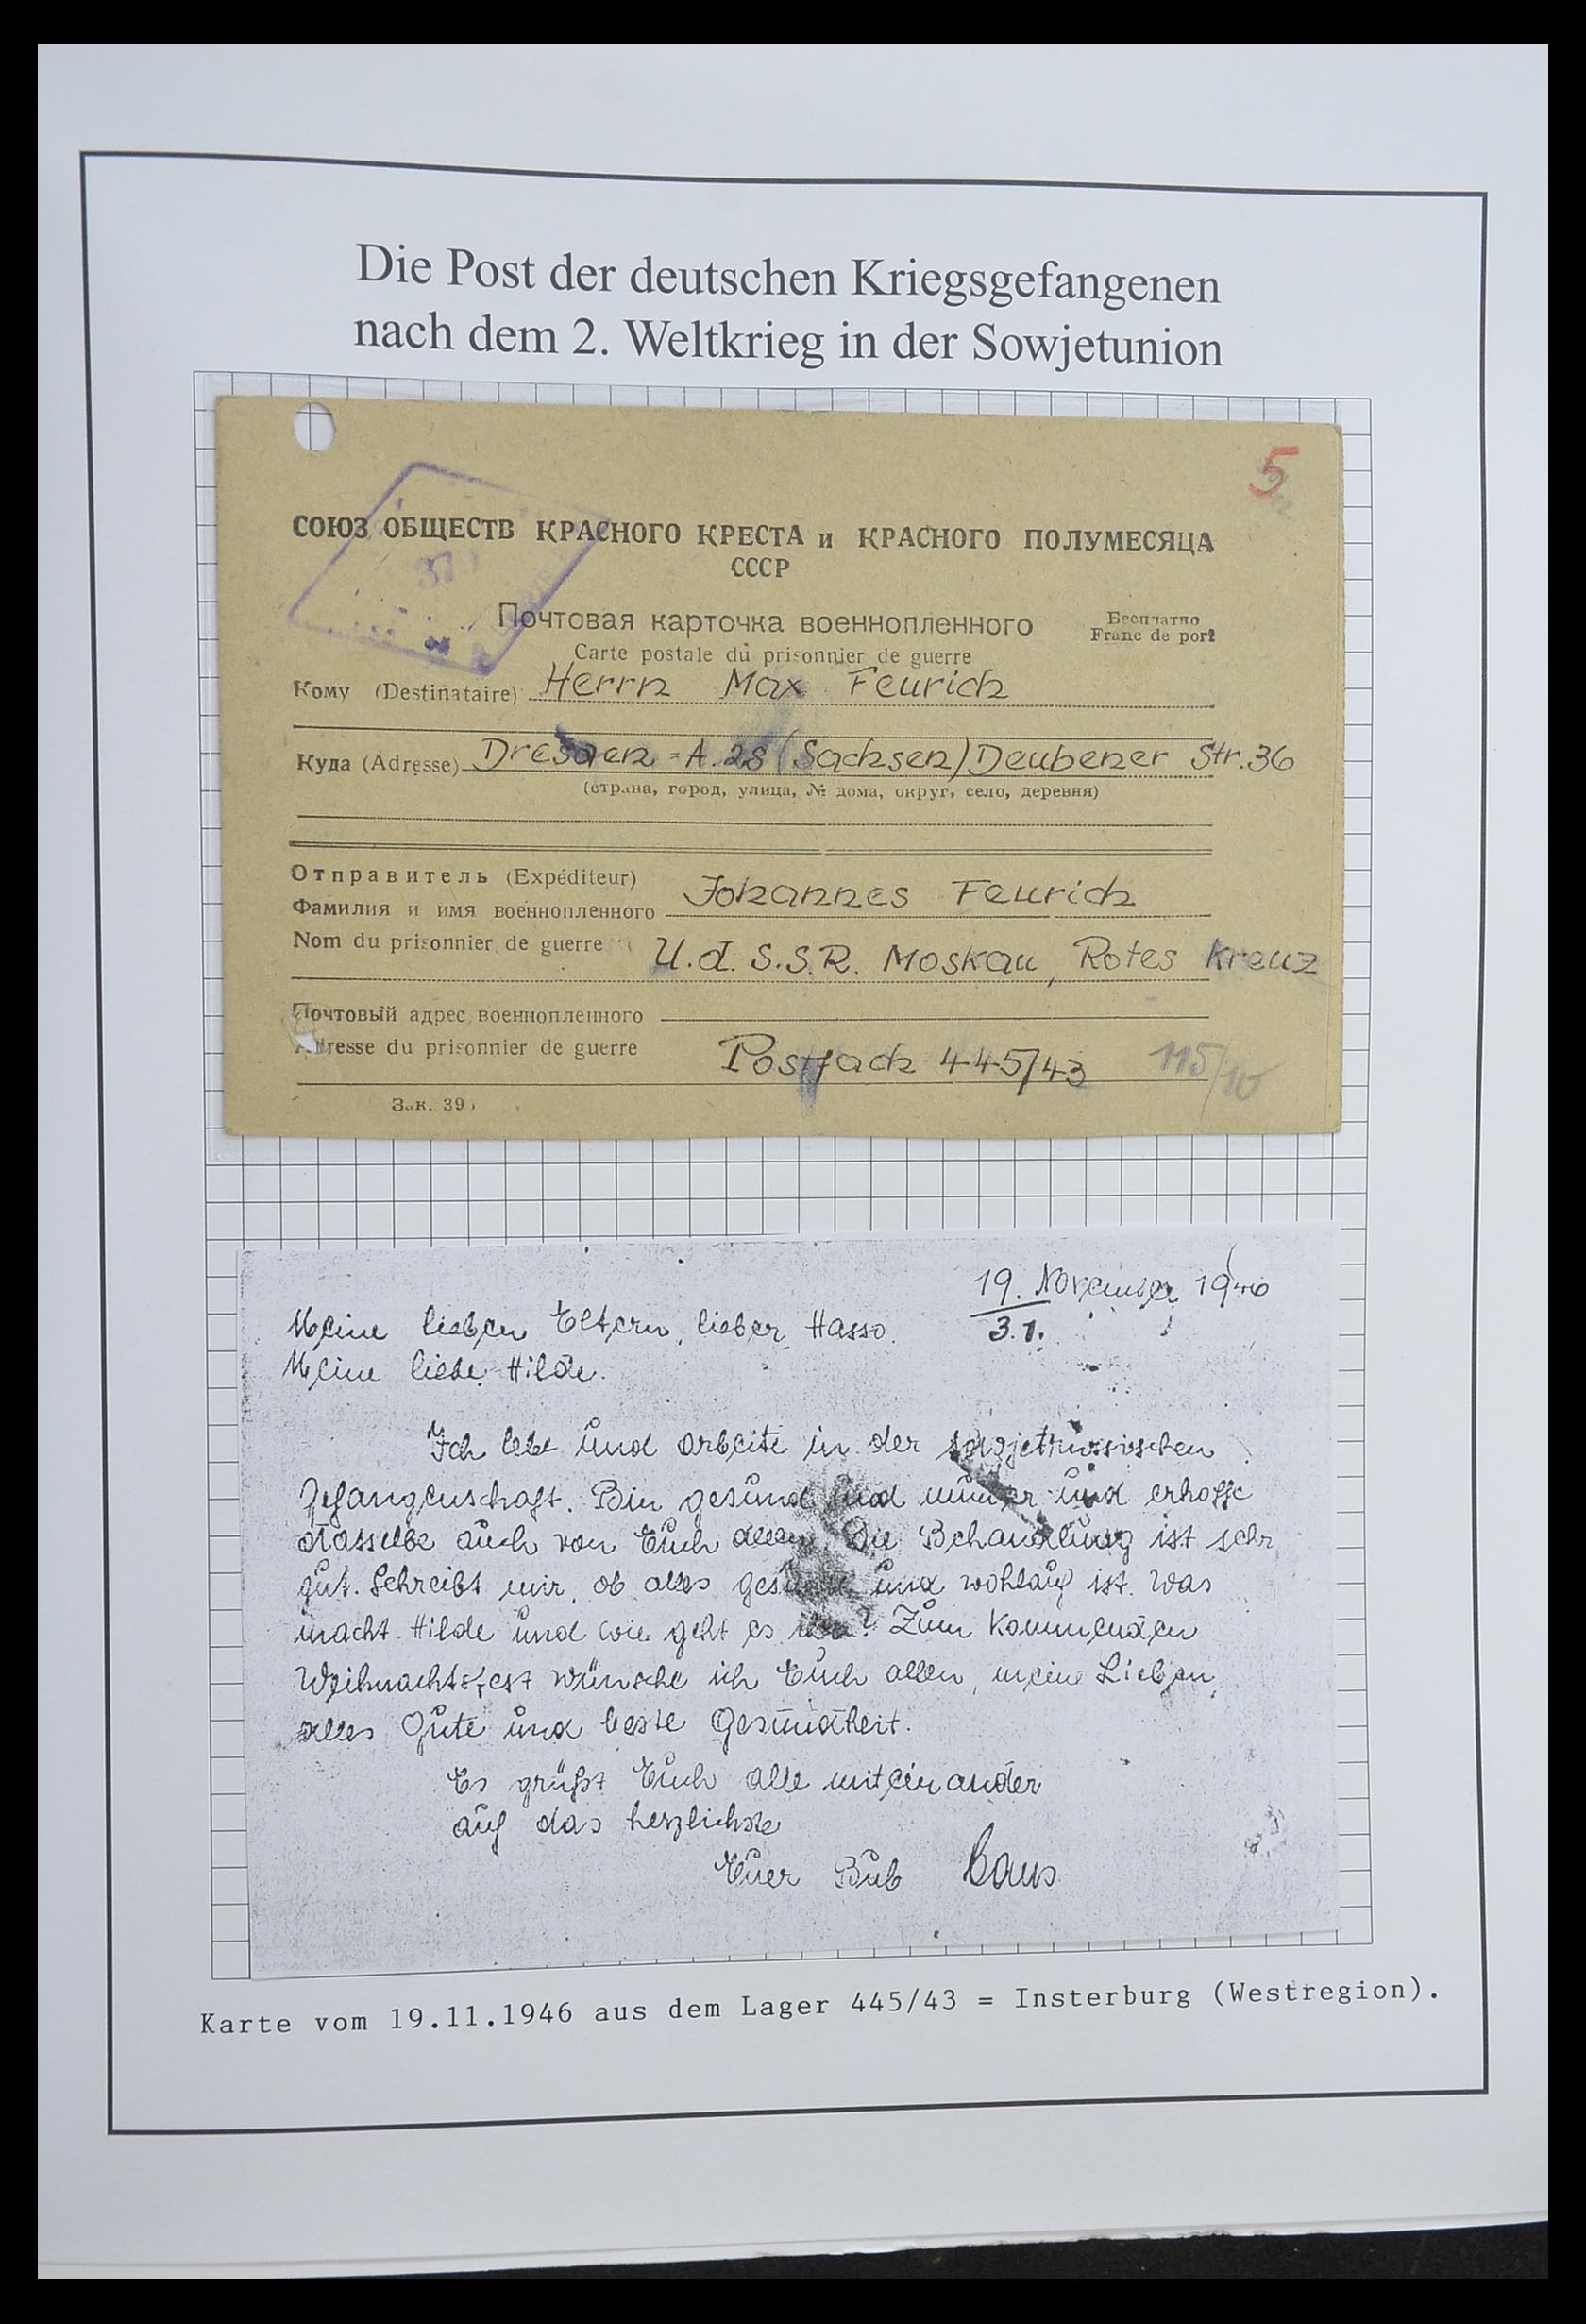 Die Post der deutschen Kriegsgefangenen
nach dem 2. Weltkrieg in der Sowjetunion
5
СОЮЗ ОБЩЕСТВ КРАСНОГО КРЕСТА и КРАСНОГО ПОЛУМЕСЯЦА
СССР
Почтовая карточка военнопленного
Бесплатно
Franc de port
Carte postale du prisonnier de guerre
Кому (Destinataire) Herrn Max Feurich
Куда (Adresse) Dresden - A. 28 (Sachsen) Deubener Str. 36
(страна, город, улица, № дома, округ, село, деревня)
Отправитель (Expéditeur)
Фамилия и имя военнопленного Johannes Feurich
Nom du prisonnier de guerre U.d.S.S.R. Moskau, Rotes Kreuz
Почтовый адрес военнопленного
Adresse du prisonnier de guerre Postfach 445/43 115/10
Зак. 39
19. November 1946
Meine lieben Eltern, lieber Hasso. 3.1.
Meine liebe Hilde.
Ich lebe und arbeite in der sowjetrussischen
Gefangenschaft. Bin gesund und munter und erhoffe
dasselbe auch von Euch allen. Die Behandlung ist sehr
gut. Schreibt mir, ob alles gesund und wohlauf ist. Was
macht Hilde und wie geht es ihr? Zum kommenden
Weihnachtsfest wünsche ich Euch allen, meine Lieben,
alles Gute und beste Gesundheit.
Es grüßt Euch alle miteinander
auf das herzlichste
Euer Bub
Karte vom 19.11.1946 aus dem Lager 445/43 = Insterburg (Westregion).